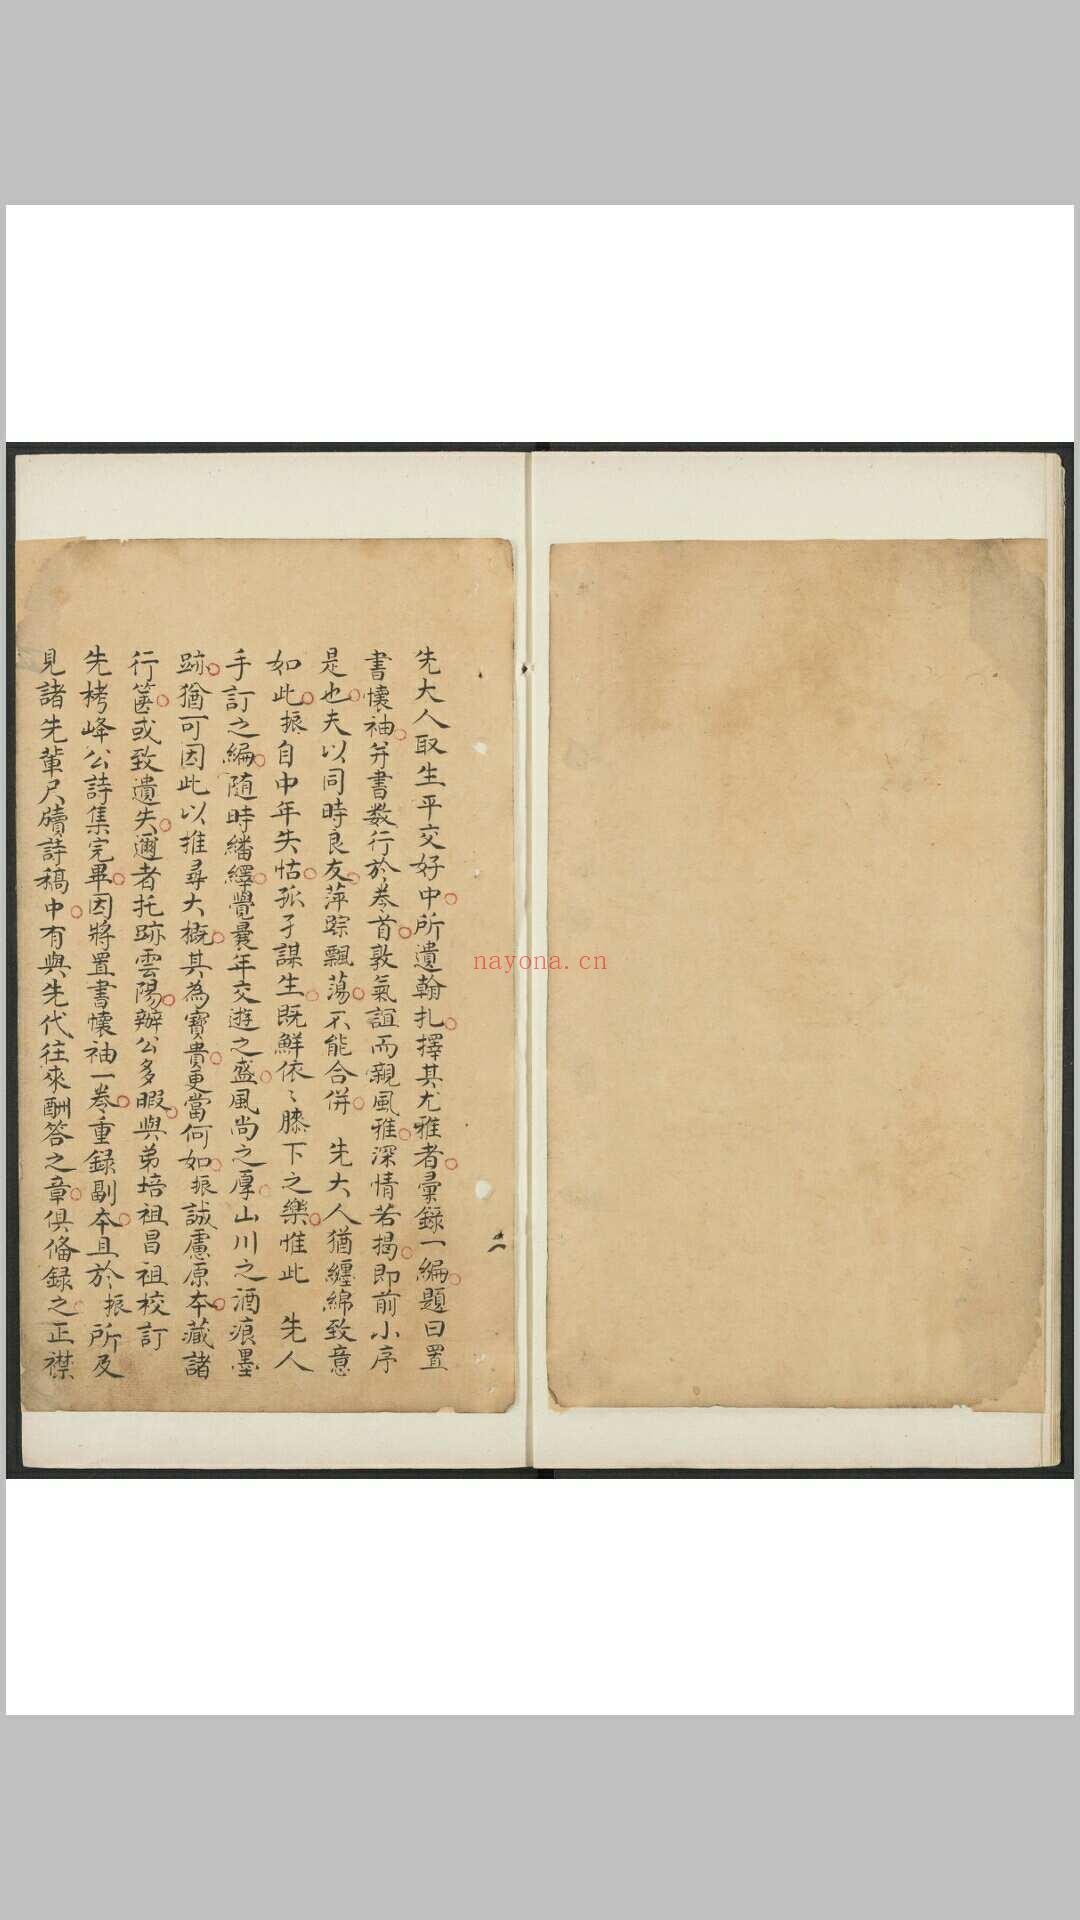 先大人取生平交好中所遺翰扎擇其尤雅者彙錄一編題曰置
書懷袖并書数行於卷首敦氣誼而親風雅深情若揭即前小序
是也夫以同時良友萍踪飄蕩不能合併 先大人猶纏綿致意
如此振自中年失怙孤子謀生既鮮依〻膝下之樂惟此 先人
手訂之編隨時繙繹覺曩年交遊之盛風尚之厚山川之酒痕墨
跡猶可因此以推尋大概其為寶貴更當何如振誠慮原本藏諸
行篋或致遺失邇者托跡雲陽辦公多暇與弟培祖昌祖校訂
先栲峰公詩集完畢因將置書懷袖一卷重錄副本且於振所及
見諸先輩尺牘詩稿中有與先代往來酬答之章俱備錄之正襟
nayona.cn